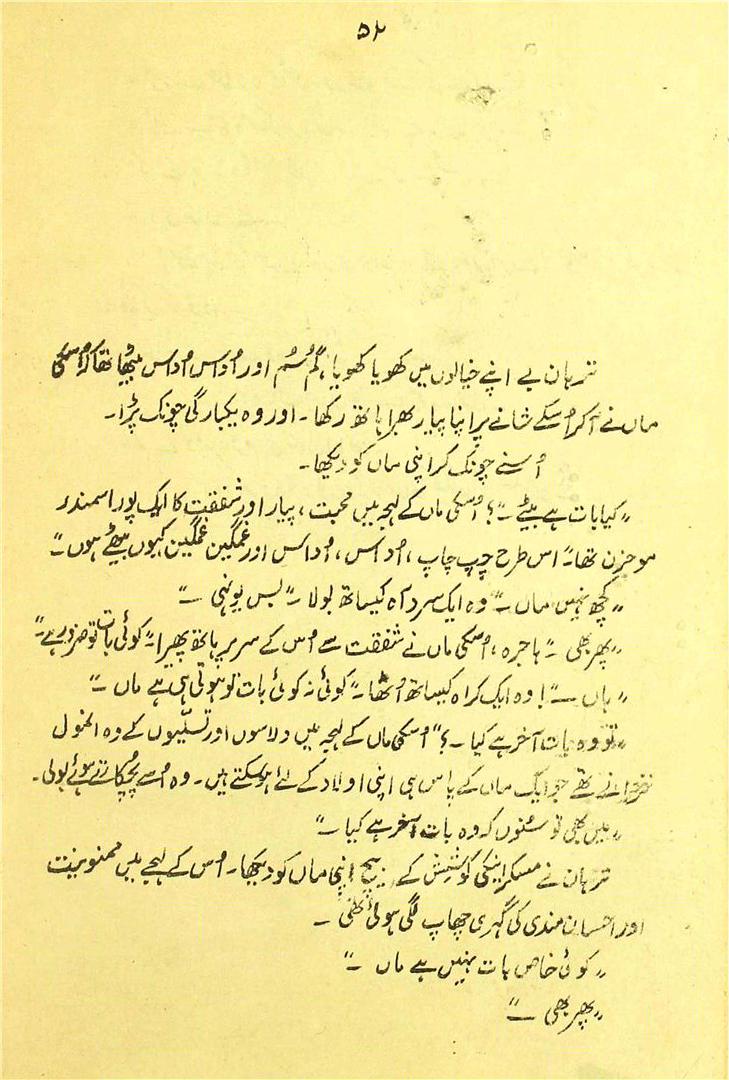 ۵۴
ترہان ہے اپنے خیالوں میں کھویا کھویا، گُم سُم اور اُداس اُداس بیٹھا تھا کہ اُسکی
ماں نے آکر اُسکے شانے پر اپنا پیار بھرا ہاتھ رکھا۔ اور وہ یکبارگی چونک پڑا۔
اُسنے چونک کر اپنی ماں کو دیکھا۔
”کیا بات ہے بیٹے۔“؟ اُسکی ماں کے لہجہ میں محبت، پیار اور شفقت کا ایک پورا سمندر
موجزن تھا۔“ اس طرح چپ چاپ، اُداس، اُداس اور غمگین غمگین کیوں بیٹھے ہوں۔“
”کچھ نہیں ماں۔“ وہ ایک سرد آہ کیساتھ بولا۔“ بس یونہی ۔“
”پھر بھی ۔“ ہاجرہ، اُسکی ماں نے شفقت سے اُس کے سر پر ہاتھ پھیرا۔“ کوئی بات تو ضرور ہے۔“
”ہاں ۔“! وہ ایک کراہ کیساتھ اُٹھا۔“ کوئی نہ کوئی بات تو ہوتی ہی ہے ماں ۔“
”تو وہ بات آخر ہے کیا ۔؟“ اُسکی ماں کے لہجہ میں دلاسوں اور تسلیّوں کے وہ انمول
خزانے تھے جو ایک ماں کے پاس ہی اپنی اولاد کے لئے ہو سکتے ہیں۔ وہ اُسے پُچکارتے ہوئے بولی۔
”میں بھی تو سنوں کہ وہ بات آخر ہے کیا ۔“
ترہان نے مسکرانیکی کوشش کے بیچ اپنی ماں کو دیکھا۔ اُس کے لہجے میں ممنونیت
اور احسان مندی کی گہری چھاپ لگی ہوئی تھی ۔
”کوئی خاص بات نہیں ہے ماں ۔“
”پھر بھی ۔“